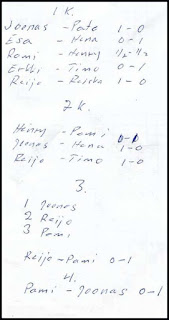 1 K.
Joonas - Pate 1-0
Esa - Hena 0-1
Pami - Henry 1/2-1/2
Erkki - Timo 0-1
Reijo - 1-0
2 K.
Henry - Pami 0-1
Joonas - Hena 1-0
Reijo - Timo 1-0
3.
1 Joonas
2 Reijo
3 Pami
Reijo - Pami 0-1
4.
Pami - Joonas 0-1